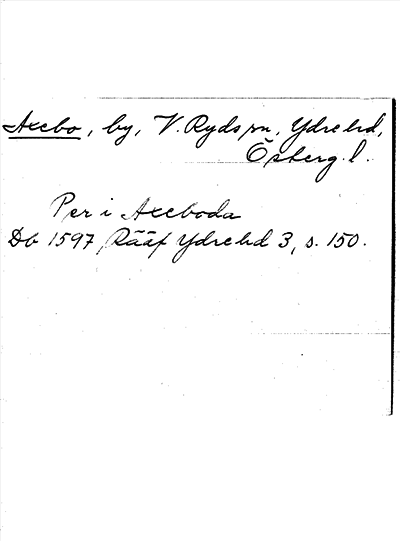 Axebo, by, V. Ryds sn, Ydre hd,
Österg. l.
Per i Axeboda
Db 1597, Rääf Ydre hd 3, s. 150.